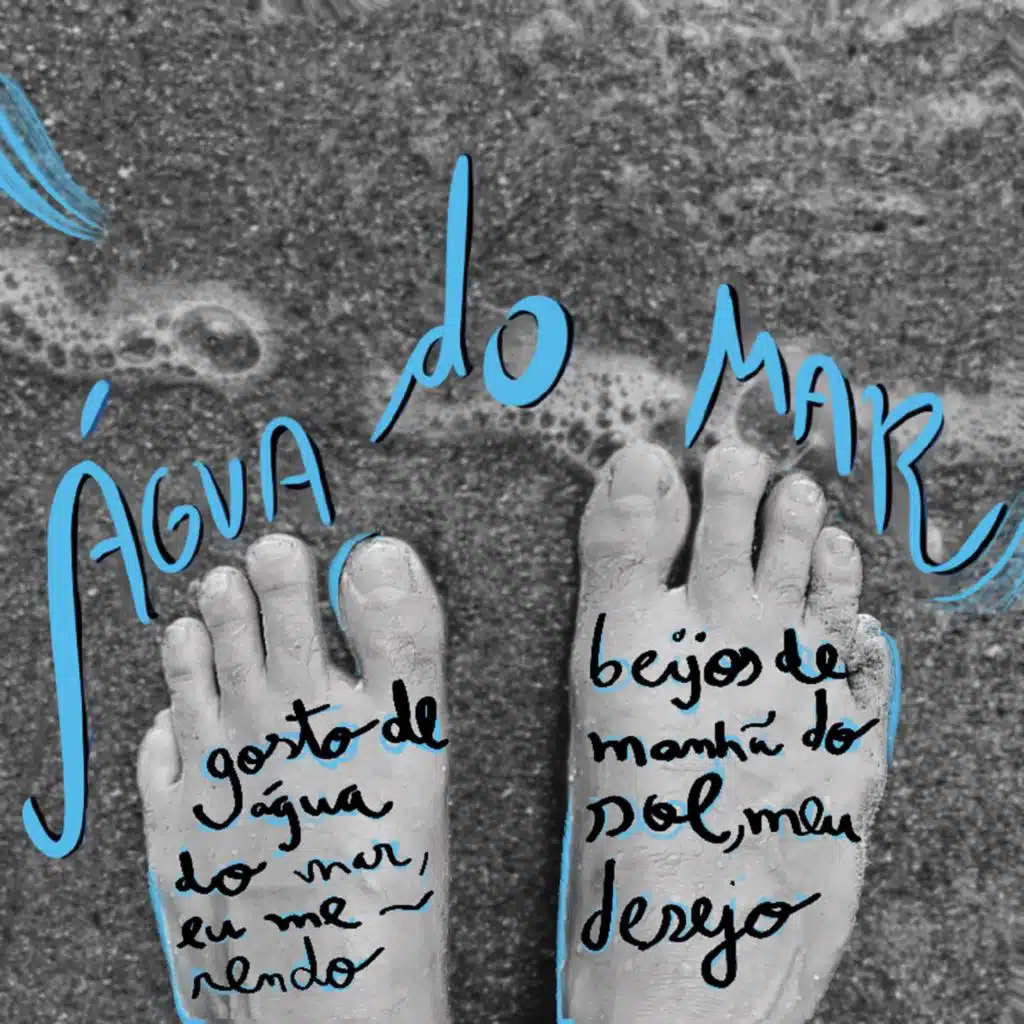 ÁGUA do MAR
gosto de
água
do mar,
eu me
rendo
beijos de
manhã do
sol, meu
desejo